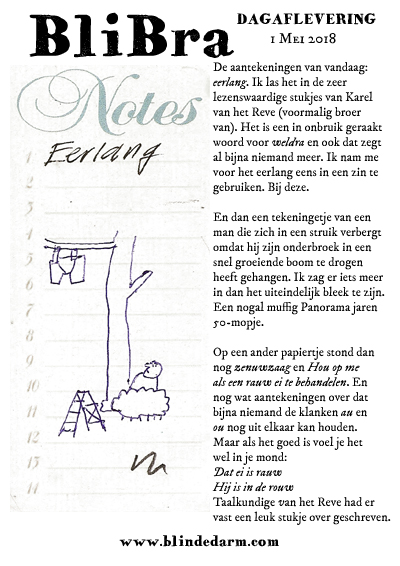 BliBra
DAGAFLEVERING
1 Mei 2018
Notes
Eerlang
1
2
3
4
5
6
7
8
9
10
11
12
13
14
De aantekeningen van vandaag:
eerlang. Ik las het in de zeer
lezenswaardige stukjes van Karel
van het Reve (voormalig broer
van). Het is een in onbruik geraakt
woord voor weldra en ook dat zegt
al bijna niemand meer. Ik nam me
voor het eerlang eens in een zin te
gebruiken. Bij deze.
En dan een tekeningetje van een
man die zich in een struik verbergt
omdat hij zijn onderbroek in een
snel groeiende boom te drogen
heeft gehangen. Ik zag er iets meer
in dan het uiteindelijk bleek te zijn.
Een nogal muffig Panorama jaren
50-mopje.
Op een ander papiertje stond dan
nog zenuwzaag en Hou op me
als een rauw ei te behandelen. En
nog wat aantekeningen over dat
bijna niemand de klanken au en
ou nog uit elkaar kan houden.
Maar als het goed is voel je het
wel in je mond:
Dat ei is rauw
Hij is in de rouw
Taalkundige van het Reve had er
vast een leuk stukje over geschreven.
www.blindedarm.com